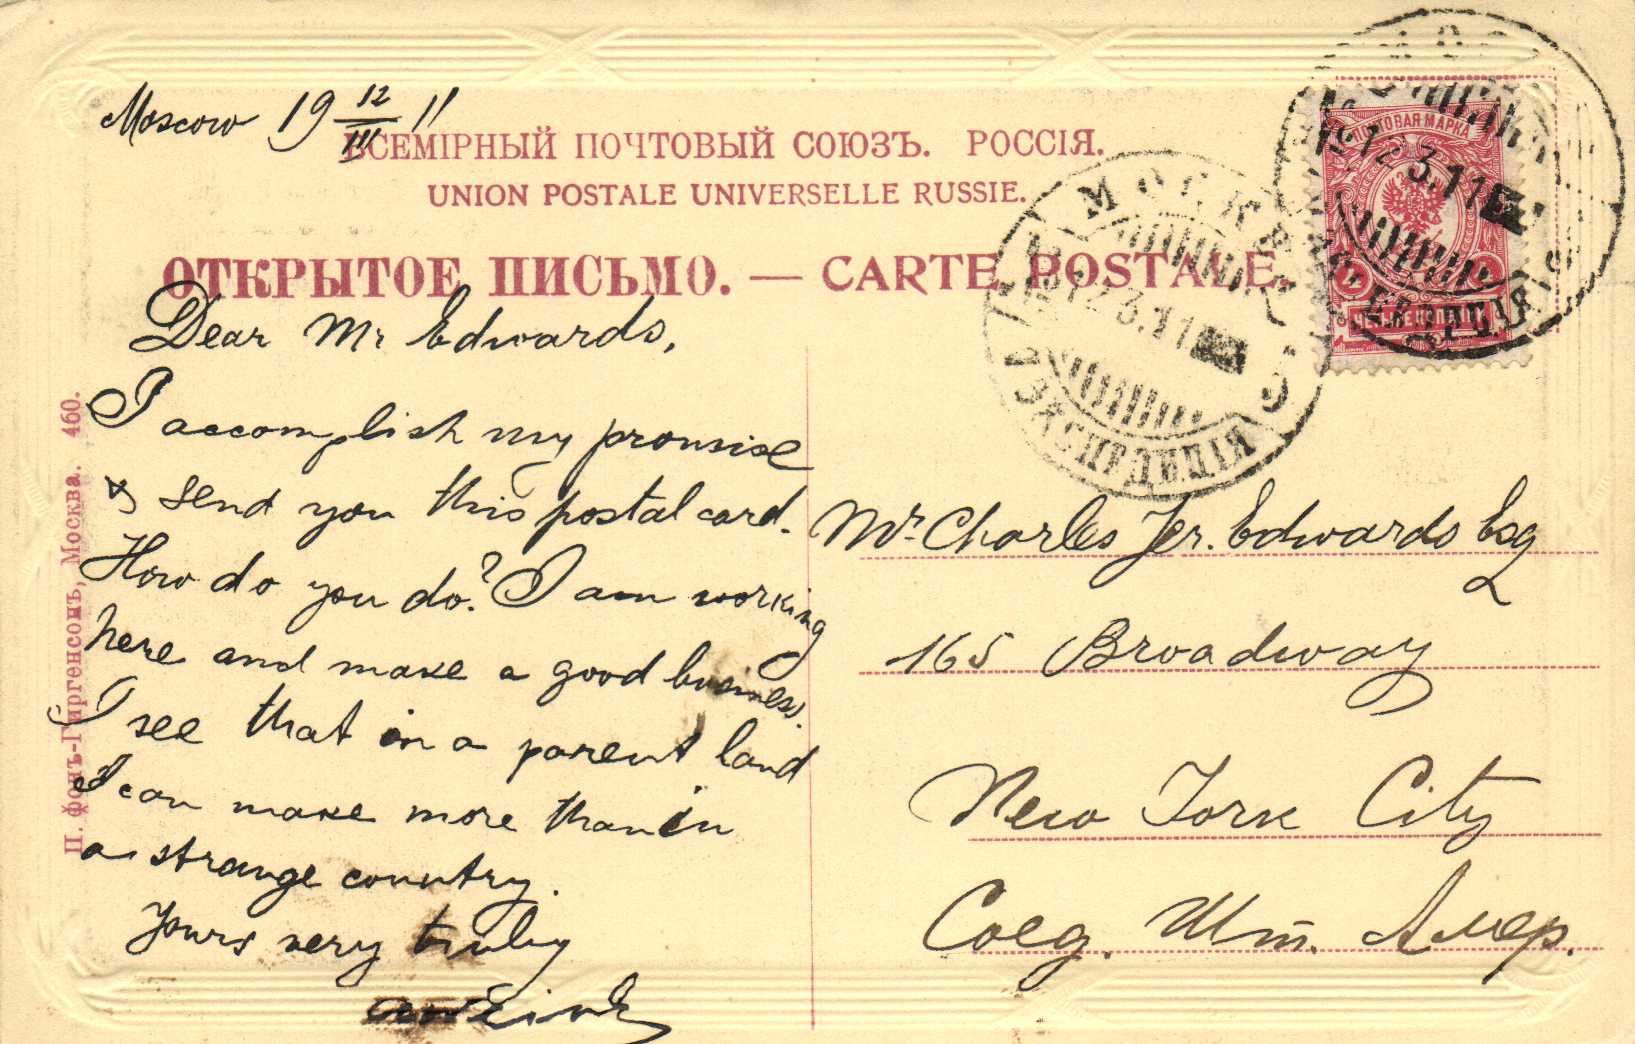 Moscow 19 12/III 11
ВСЕМІРНЫЙ ПОЧТОВЫЙ СОЮЗЪ. РОССІЯ.
UNION POSTALE UNIVERSELLE RUSSIE.
ОТКРЫТОЕ ПИСЬМО. — CARTE POSTALE.
Dear Mr Edwards,
I accomplish my promise
& send you this postal card.
How do you do? I am working
here and make a good business.
I see that in a parent land
I can make more than in
a strange country.
Yours very truly
Mr. Charles Jer. Edwards Esq
165 Broadway
New York City
Соед. Шт. Амер.
П. фонъ-Гиргенсонъ, Москва. 460.
МОСКВА
12.3.11
ЭКСПЕДИЦІЯ
ПОЧТОВАЯ МАРКА
12.3.11
ЭКСПЕДИЦІЯ